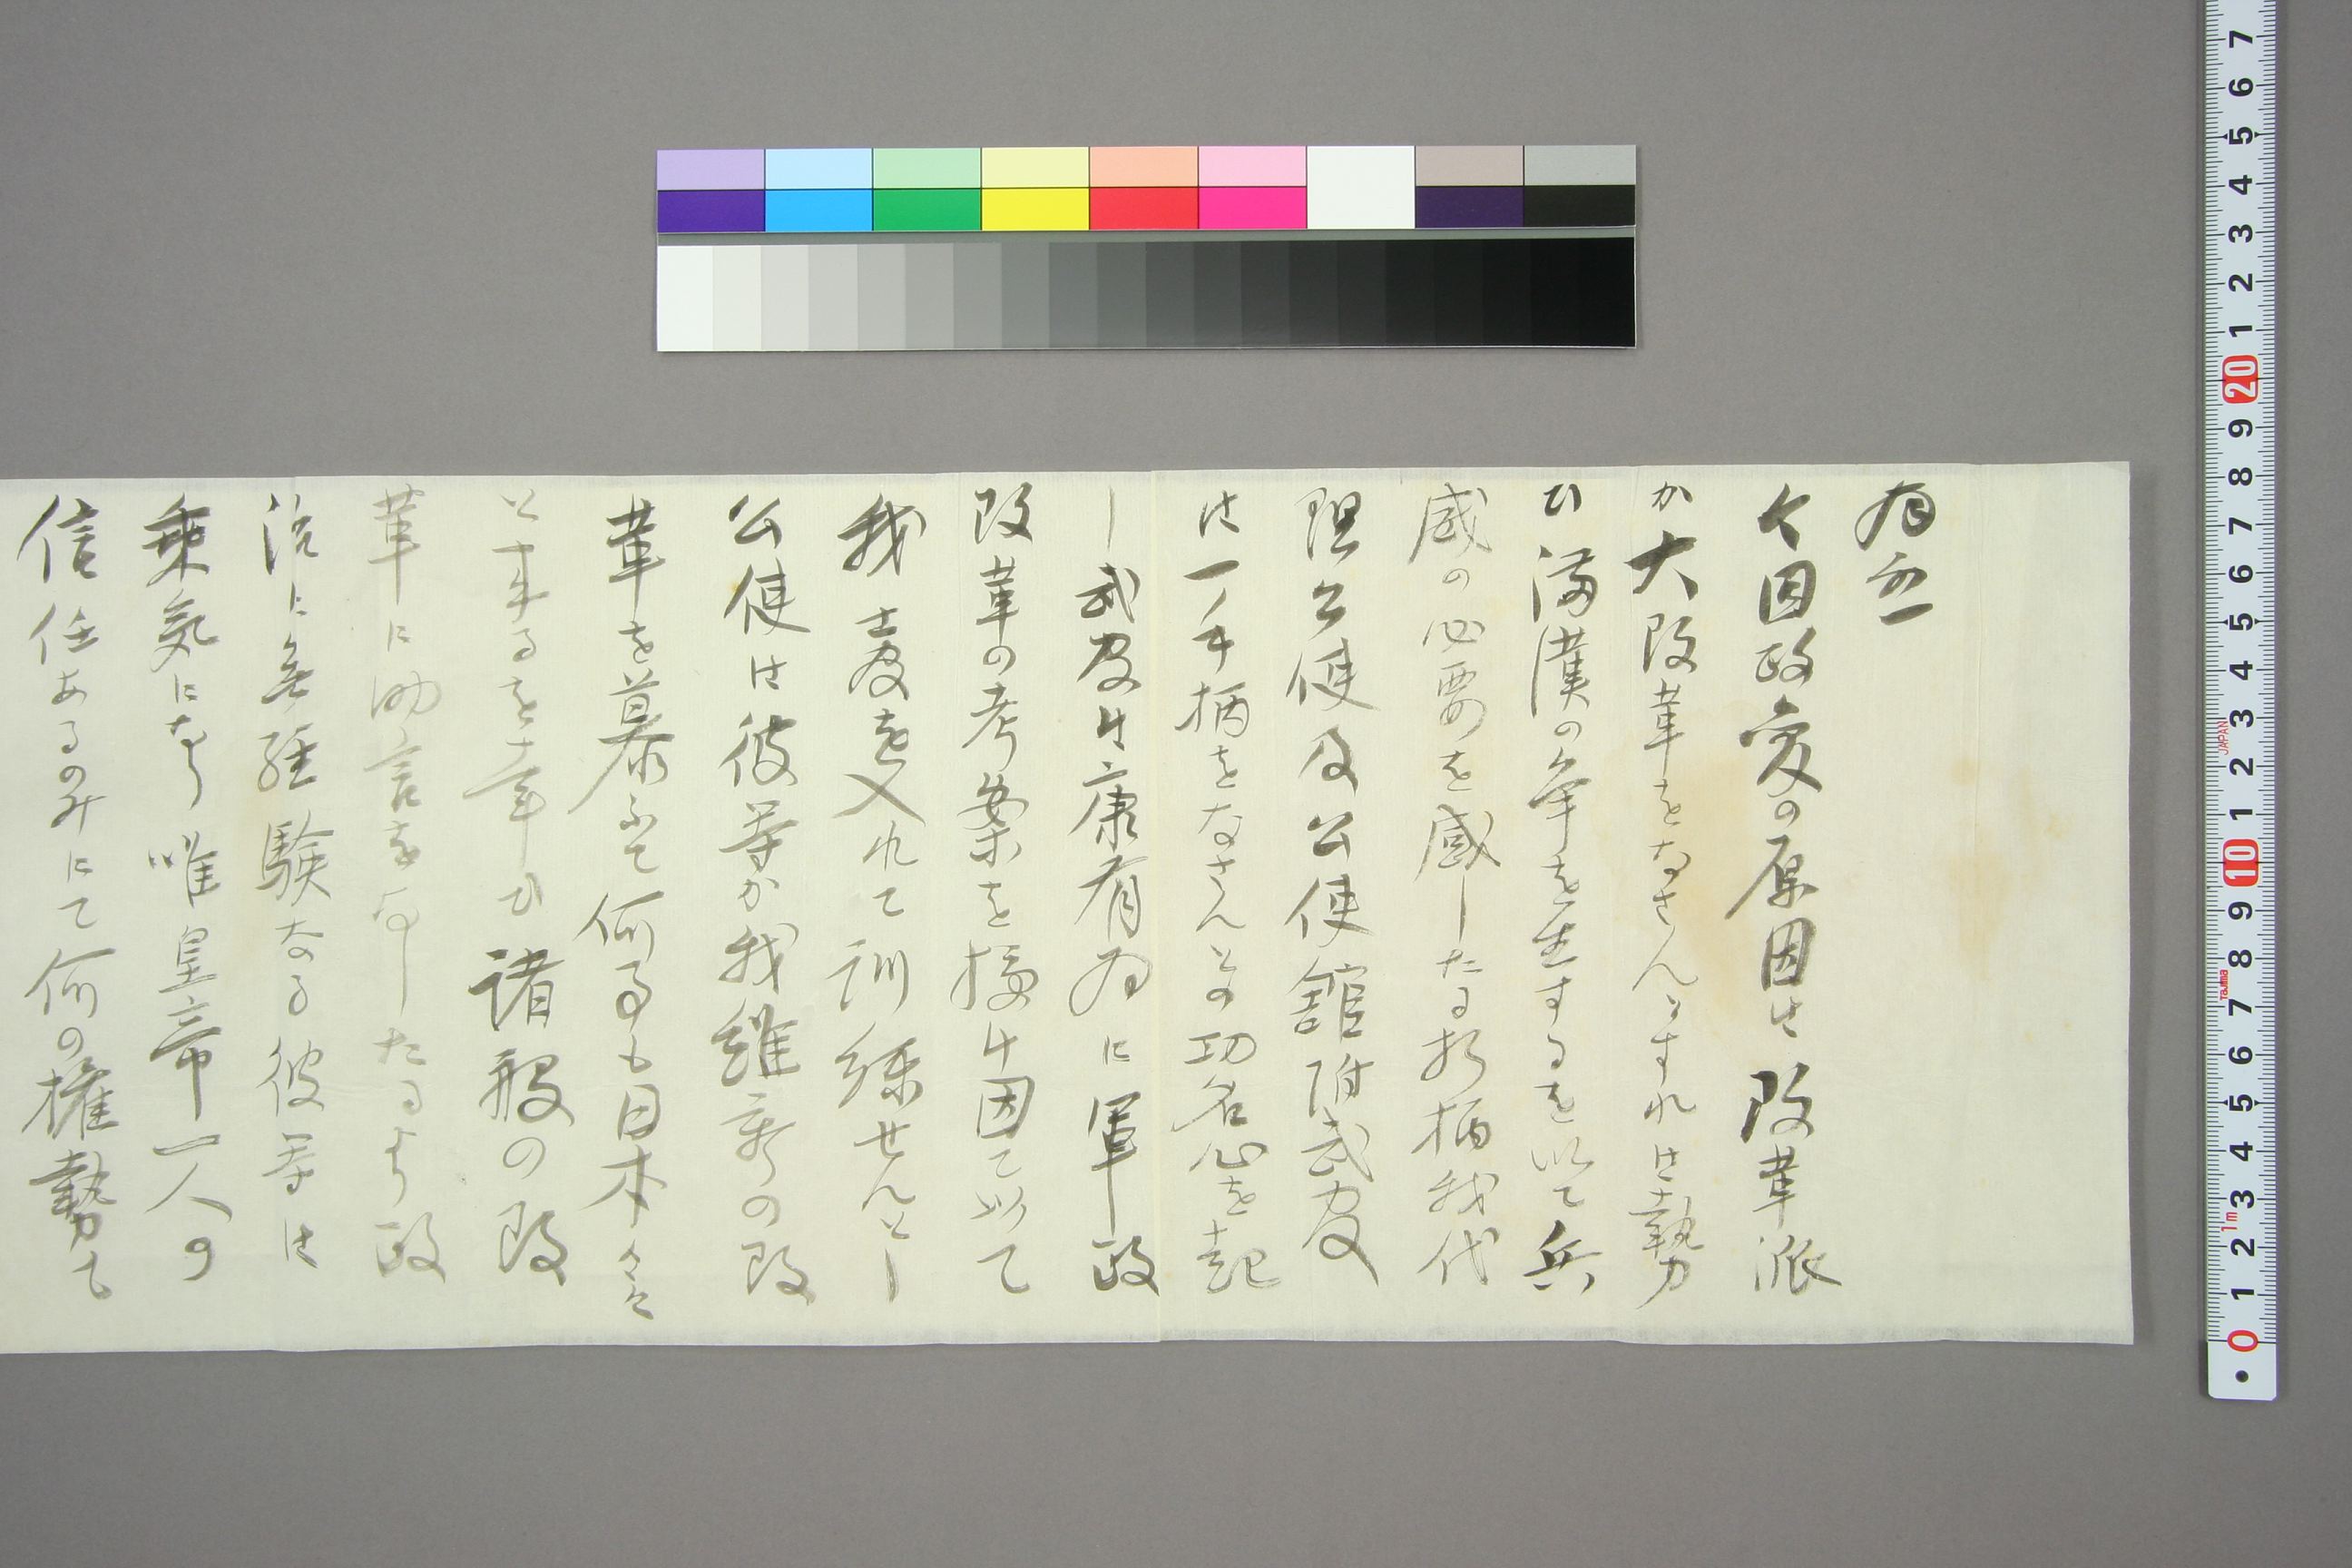 今回政変の原因は改革派
か大改革をなさんとすれは勢
ひ満漢の争を生するを以て兵
威の必要を感したる折柄我代
理公使及公使館附武官
は一手柄をなさんとの功名心を起
し武官は康有為に軍政
改革の考案を授け因て以て
我士官を入れて訓練せんとし
公使は彼等か我維新の改
革を慕ふて何事も日本々々
と来るを幸ひ諸般の改
革に助言を為したるより政
治に無経験なる彼等は
乗気になり唯皇帝一人の
信任あるのみにて何の権勢も
7 6 5 4 3 2 1 20 9 8 7 6 5 4 3 2 1 10 9 8 7 6 5 4 3 2 1 0
JAPAN
Tajima
1m